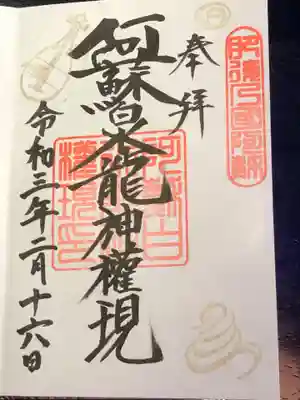 奉拝
阿蘇白水龍神權現
令和三年二月十六日